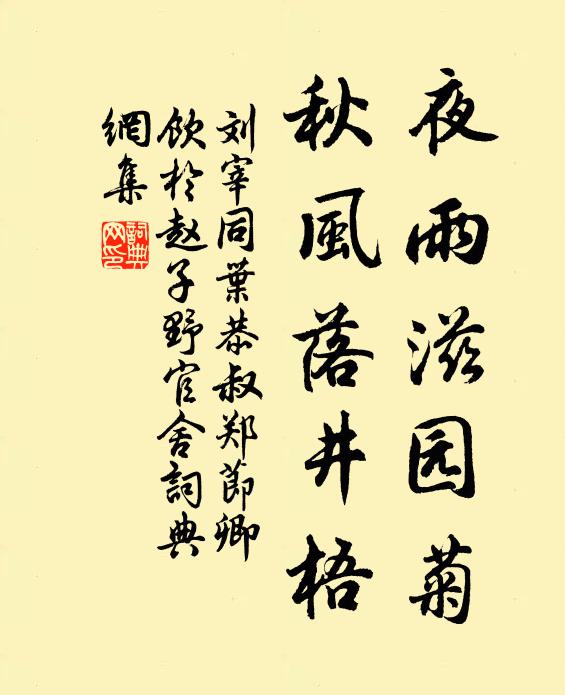 夜雨滋园菊
秋風落井梧
刘宰同葉恭叔郑節卿
飲於赵子野官舍詞典
網集
詞典網印